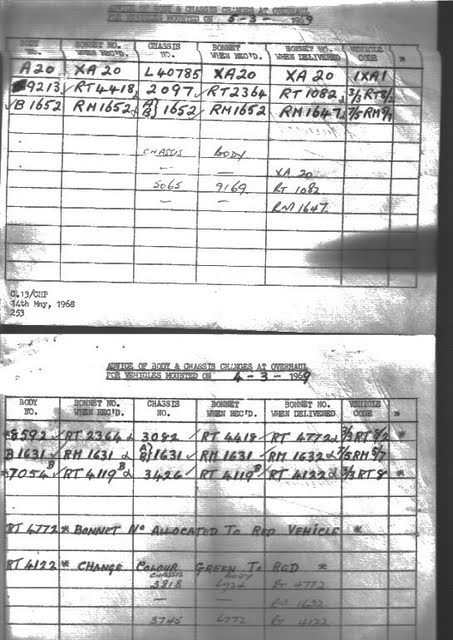 ADVICE OF BODY & CHASSIS CHANGES AT OVERHAUL
FOR VEHICLES MOUNTED ON 5-3-1969
BODY NO. BONNET NO. WHEN REC'D. CHASSIS NO. BONNET WHEN REC'D. BONNET NO. WHEN DELIVERED VEHICLE CODE *
A20 XA20 L40785 XA20 XA 20 1XA1
9213 RT4418 2097 RT2364 RT1082
B1652 RM1652 1652 RM1652 RM1647
CHASSIS BODY
— — XA 20
5065 9169 RT 1082
— — RM 1647
C.13/CHP
14th May, 1968
253
ADVICE OF BODY & CHASSIS CHANGES AT OVERHAUL
FOR VEHICLES MOUNTED ON 4-3-1969
BODY NO. BONNET NO. WHEN REC'D. CHASSIS NO. BONNET WHEN REC'D. BONNET NO. WHEN DELIVERED VEHICLE CODE *
*8592 RT 2364 3082 RT 4418 RT 4772 *
B1631 RM 1631 1631 RM 1631 RM 1632
*7054 RT 4119 B 3426 RT 4119 B RT 4122 3/3 RT8 *
RT 4772 * BONNET No ALLOCATED TO RED VEHICLE *
RT 4122 * CHANGE COLOUR GREEN TO RED *
CHASSIS BODY
3818 6924 RT 4772
— — RM 1632
3745 6772 RT 4122